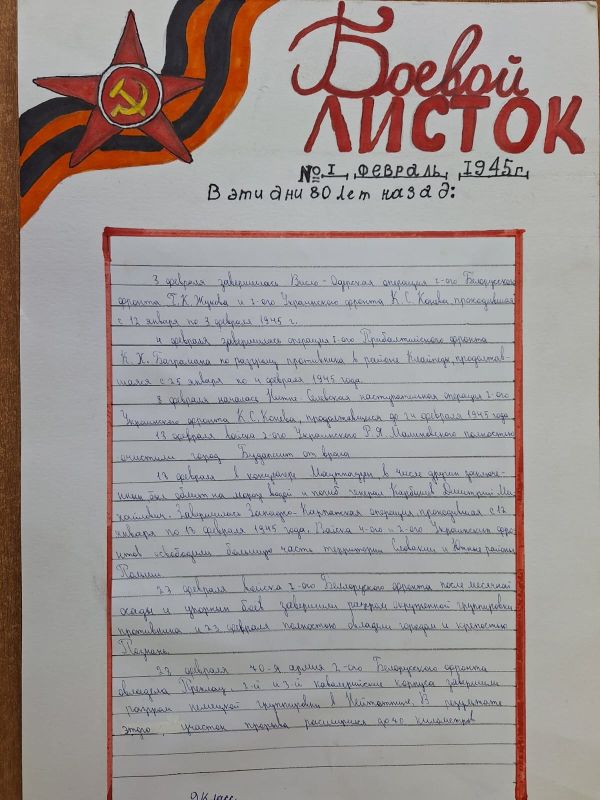 Боевой
ЛИСТОК
№ 1 февраль 1945г.
В эти дни 80 лет назад:
3 февраля завершилась Висло-Одерская операция 1-ого Белорусского
фронта Г.К. Жукова и 1-ого Украинского фронта К.С. Конева, проходившая
с 12 января по 3 февраля 1945 г.
4 февраля завершилась операция 1-ого Прибалтийского фронта
К.Х. Баграмана по разгрому противника в районе Клайпеды, продолжав-
шаяся с 25 января по 4 февраля 1945 года.
8 февраля началась Нижне Селевская наступательная операция 1-ого
Украинского фронта К.С. Конева, продолжавшиеся до 24 февраля 1945 года
13 февраля войска 2-ого Украинского Р.Я. Малиновского полностью
очистили город Будапешт от врага
18 февраля в концлагере Маутхаузен, в числе других заключе-
нных был облит на морозе водой и погиб генерал Карбышев Дмитрий Ми-
хайлович. Завершилась Западно-Карпатская операция, проходившая с 12
января по 18 февраля 1945 года. Войска 4-ого и 2-ого Украинских фро-
нтов освободили большую часть территории Словакии и Южные районы
Польши.
23 февраля войска 1-ого Белорусского фронта после месячной
осады и упорных боев завершили разгром окруженной группировки
противника и 23 февраля полностью овладели городом и крепостью
Познань.
23 февраля 70-я армия 2-ого Белорусского фронта
овладела 1-й и 3-й кавалерийские корпуса завершили
разгром немецкой группировки в В результате
этого участок прорыва расширился до 40 километров
9 Класс